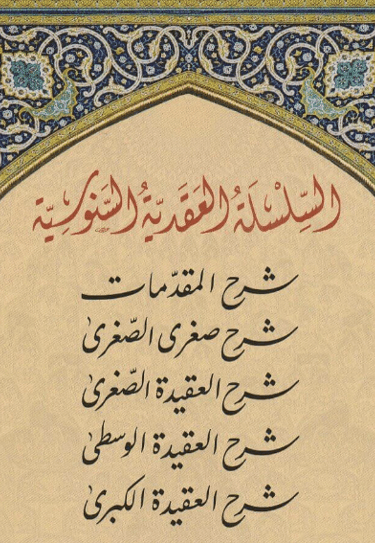 السِّلْسِلَةُ العَقَدِيَّةُ السَّنُوسِيَّة
شرح المقدّمات
شرح صغرى الصّغرى
شرح العقيدة الصّغرى
شرح العقيدة الوسطى
شرح العقيدة الكبرى